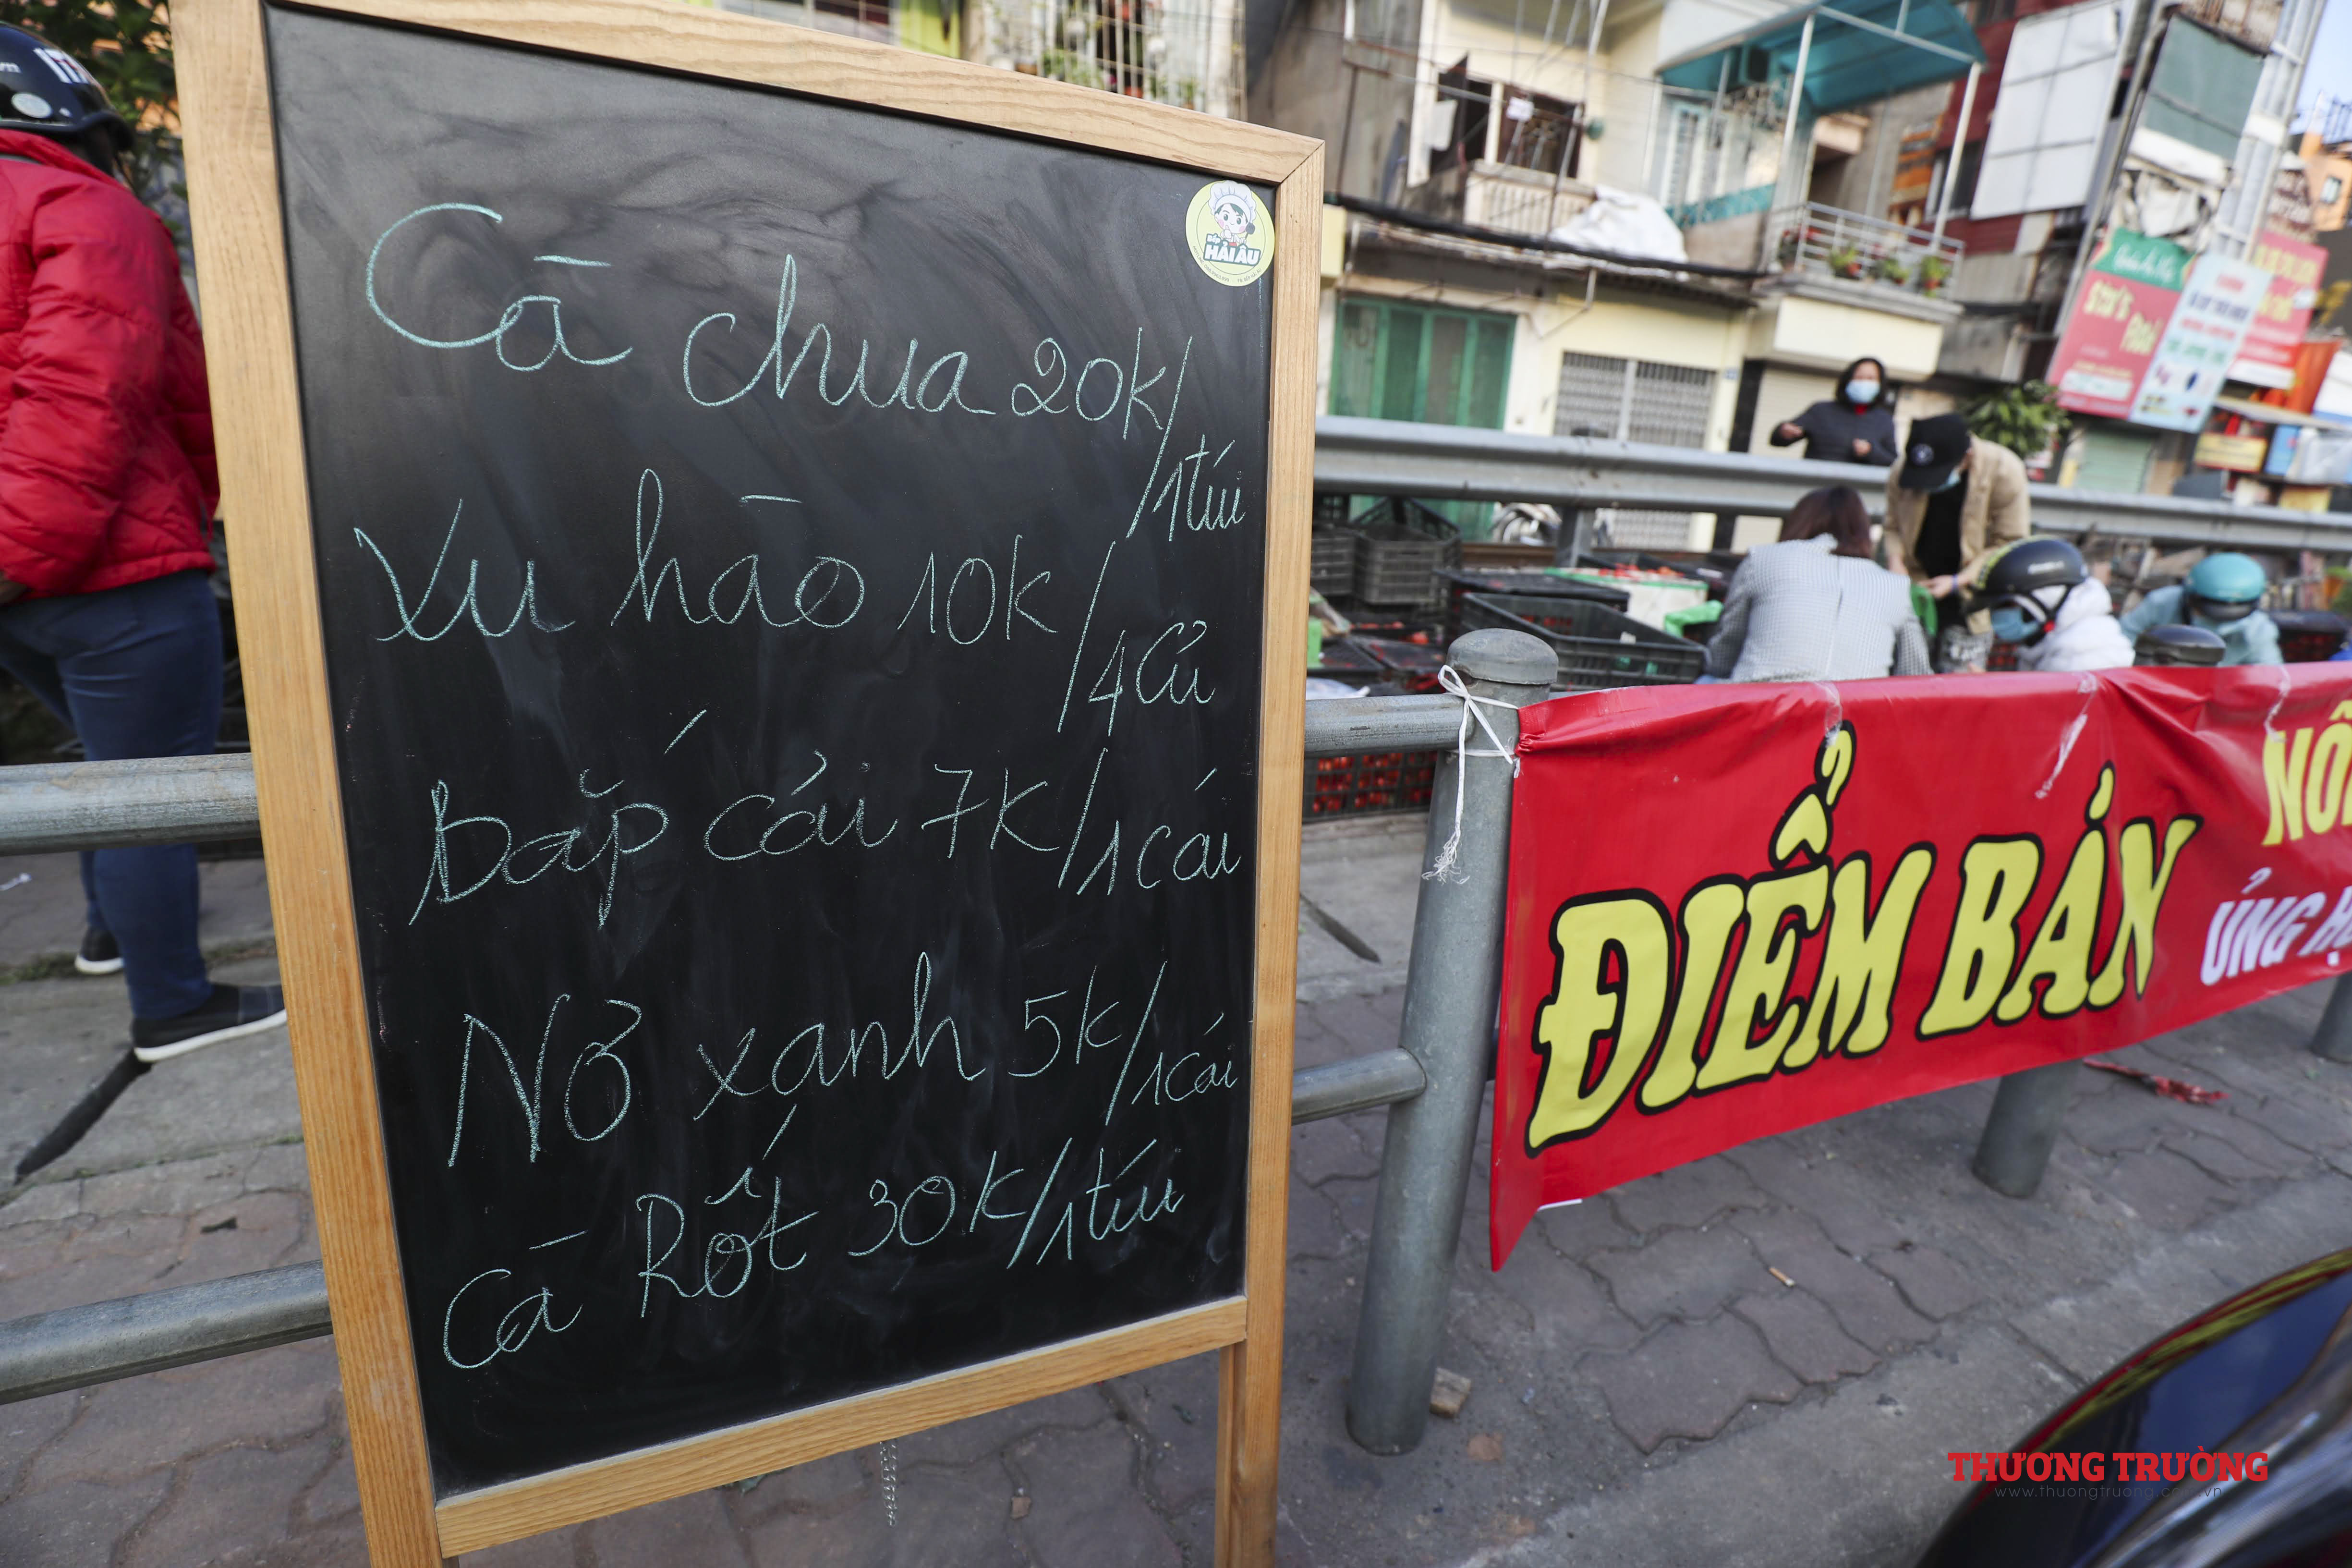 Cà chua 20k/1túi
Xu hào 10k/4củ
bắp cải 7k/1cái
Nơ xanh 5k/1cái
Cà Rốt 30k/1túi
HẢI ÂU
ĐIỂM BÁN
ỦNG
THƯƠNG TRƯỜNG
www.thuongtruong.com.vn